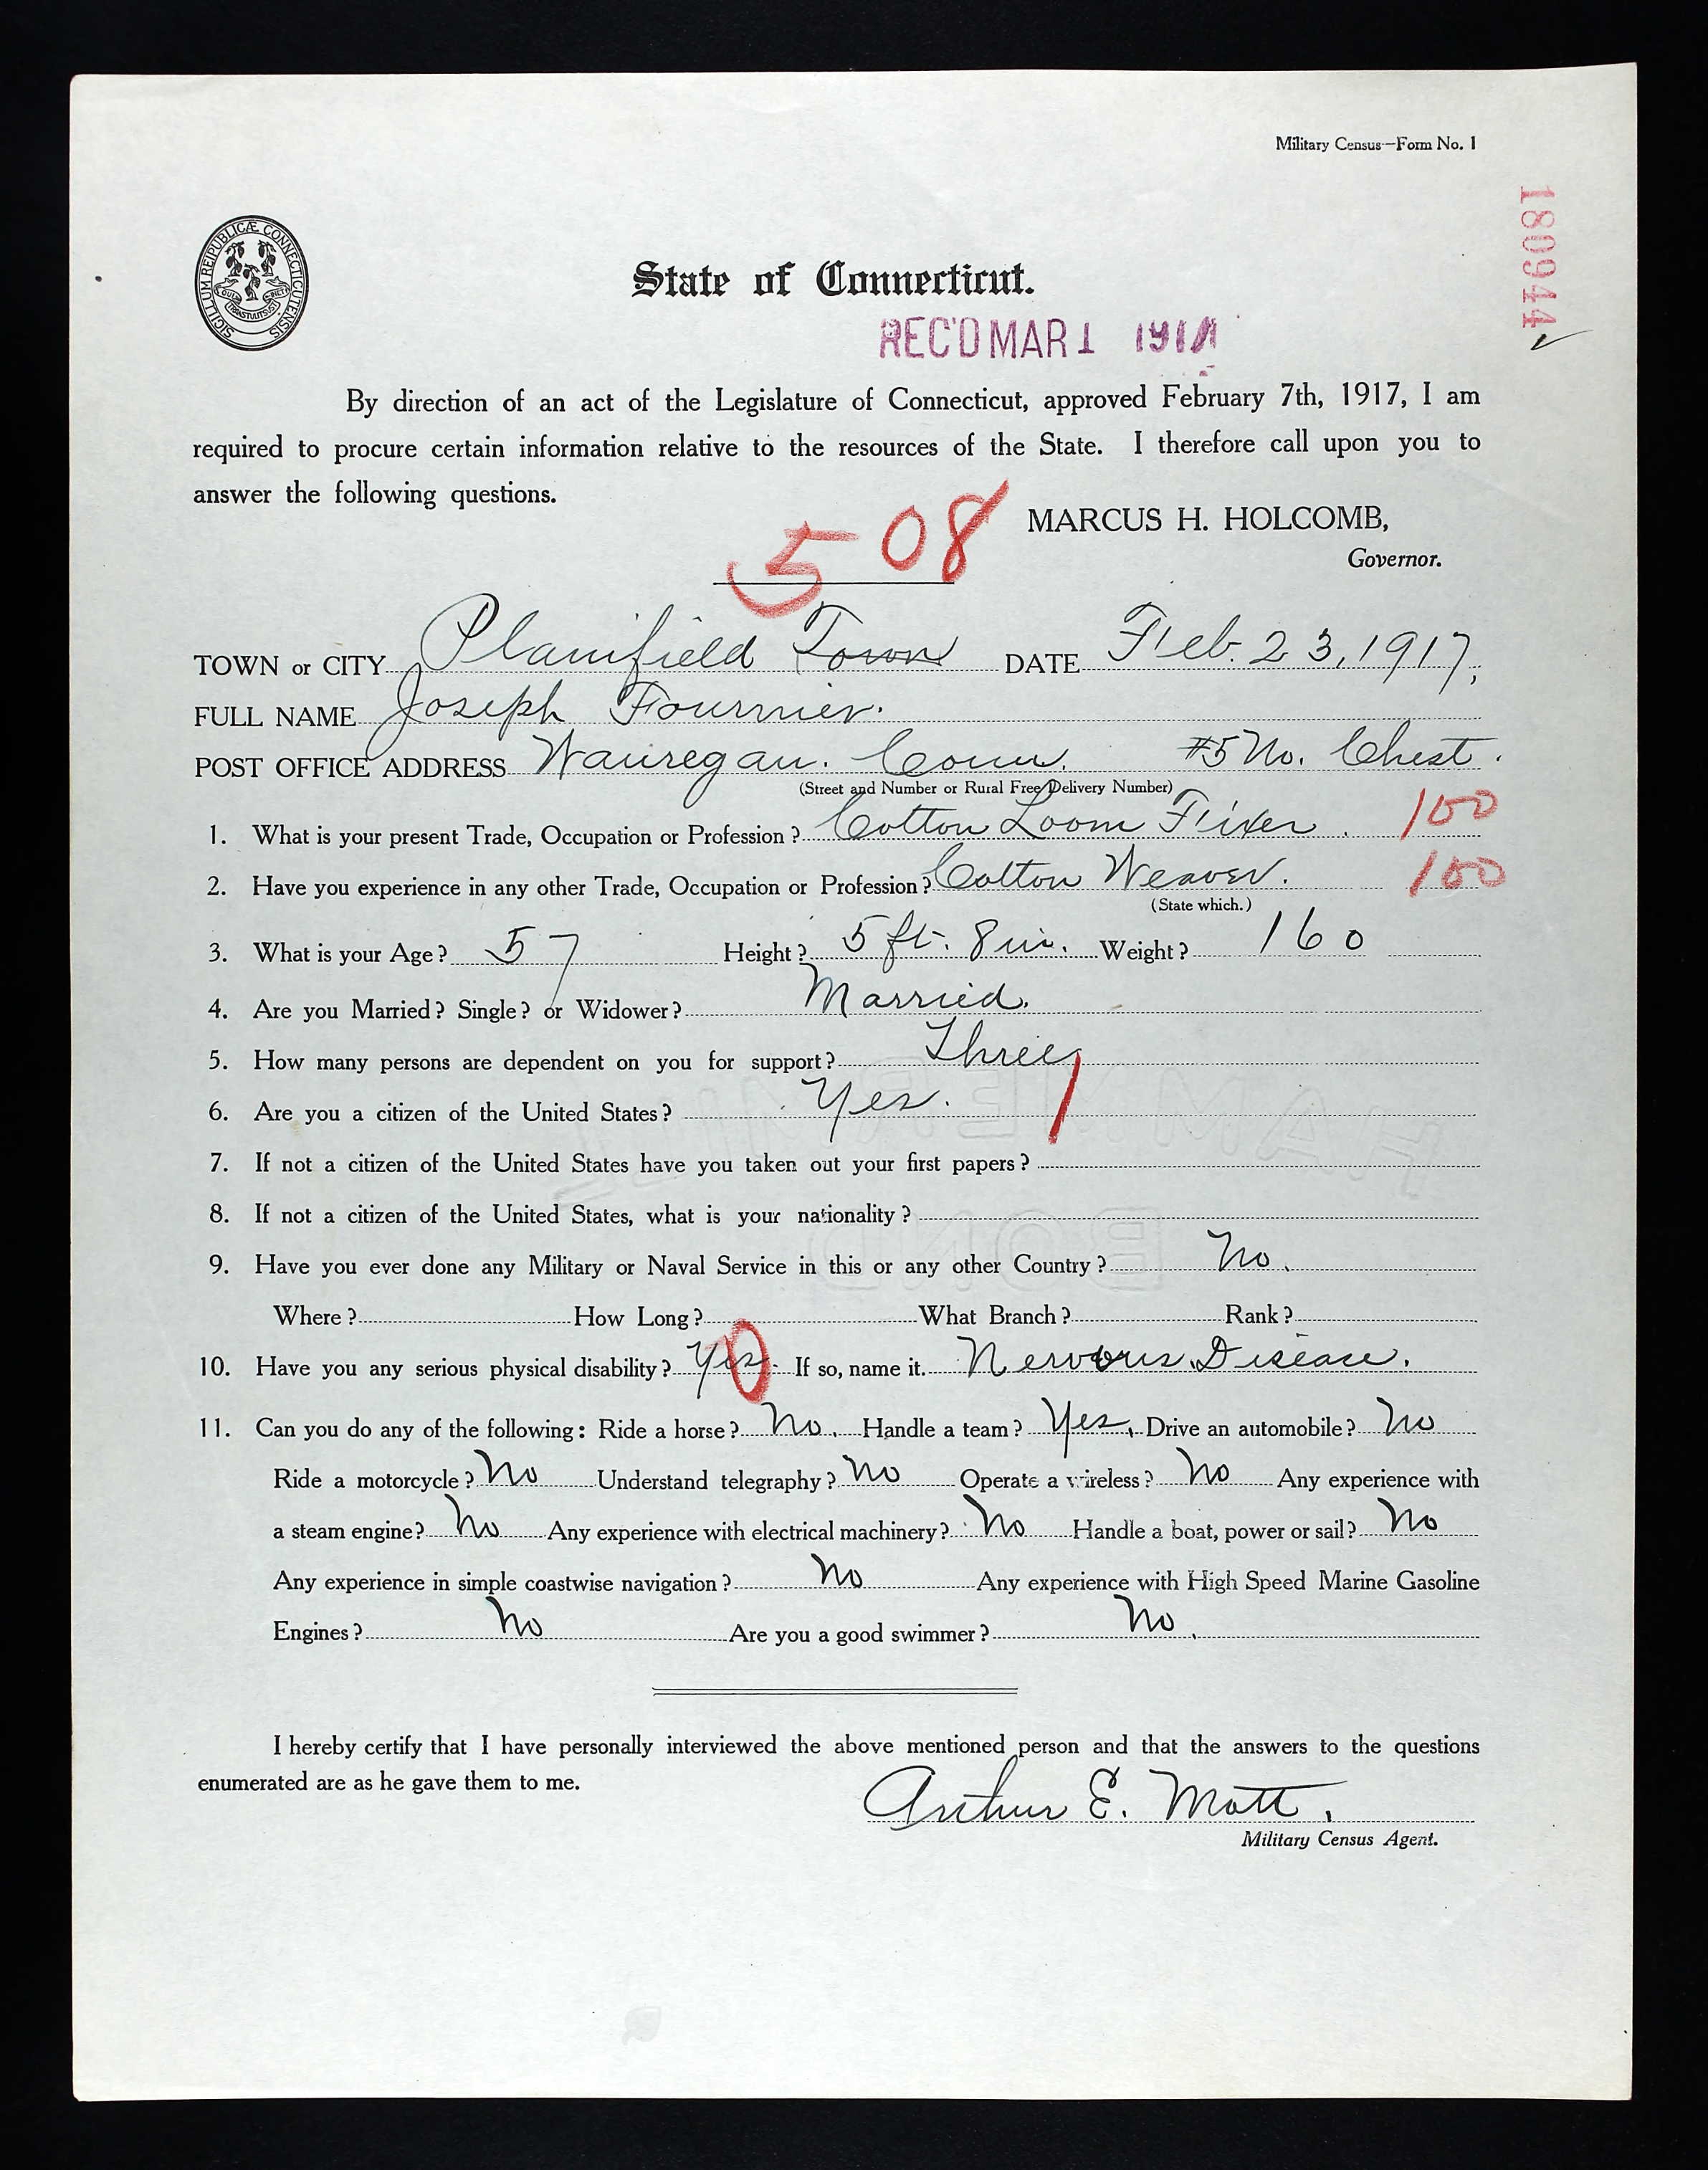 Military Census—Form No. 1
180944
SIGILLUM REIPUBLICÆ CONNECTICUTENSIS
QUI TRANSTULIT SUST
State of Connecticut.
REC'D MAR 1
By direction of an act of the Legislature of Connecticut, approved February 7th, 1917, I am
required to procure certain information relative to the resources of the State. I therefore call upon you to
answer the following questions.
508
MARCUS H. HOLCOMB,
Governor.
TOWN or CITY Plainfield Town DATE Feb. 23, 1917,
FULL NAME Joseph Fournier.
POST OFFICE ADDRESS Wauregan. Conn. #5 No. Chest.
(Street and Number or Rural Free Delivery Number)
1. What is your present Trade, Occupation or Profession? Cotton Loom Fixer. 100
2. Have you experience in any other Trade, Occupation or Profession? Cotton Weaver. 100
(State which.)
3. What is your Age? 57 Height? 5 ft. 8 in. Weight? 160
4. Are you Married? Single? or Widower? Married.
5. How many persons are dependent on you for support? Three
6. Are you a citizen of the United States? Yes.
7. If not a citizen of the United States have you taken out your first papers?
8. If not a citizen of the United States, what is your nationality?
9. Have you ever done any Military or Naval Service in this or any other Country? No.
Where? How Long? What Branch? Rank?
10. Have you any serious physical disability? Yes. If so, name it. Nervous Disease.
11. Can you do any of the following: Ride a horse? No. Handle a team? Yes. Drive an automobile? No
Ride a motorcycle? No Understand telegraphy? No Operate a wireless? No Any experience with
a steam engine? No Any experience with electrical machinery? No Handle a boat, power or sail? No
Any experience in simple coastwise navigation? No Any experience with High Speed Marine Gasoline
Engines? No Are you a good swimmer? No.
I hereby certify that I have personally interviewed the above mentioned person and that the answers to the questions
enumerated are as he gave them to me.
Arthur E. Mott.
Military Census Agent.
HAMMERMILL
BOND